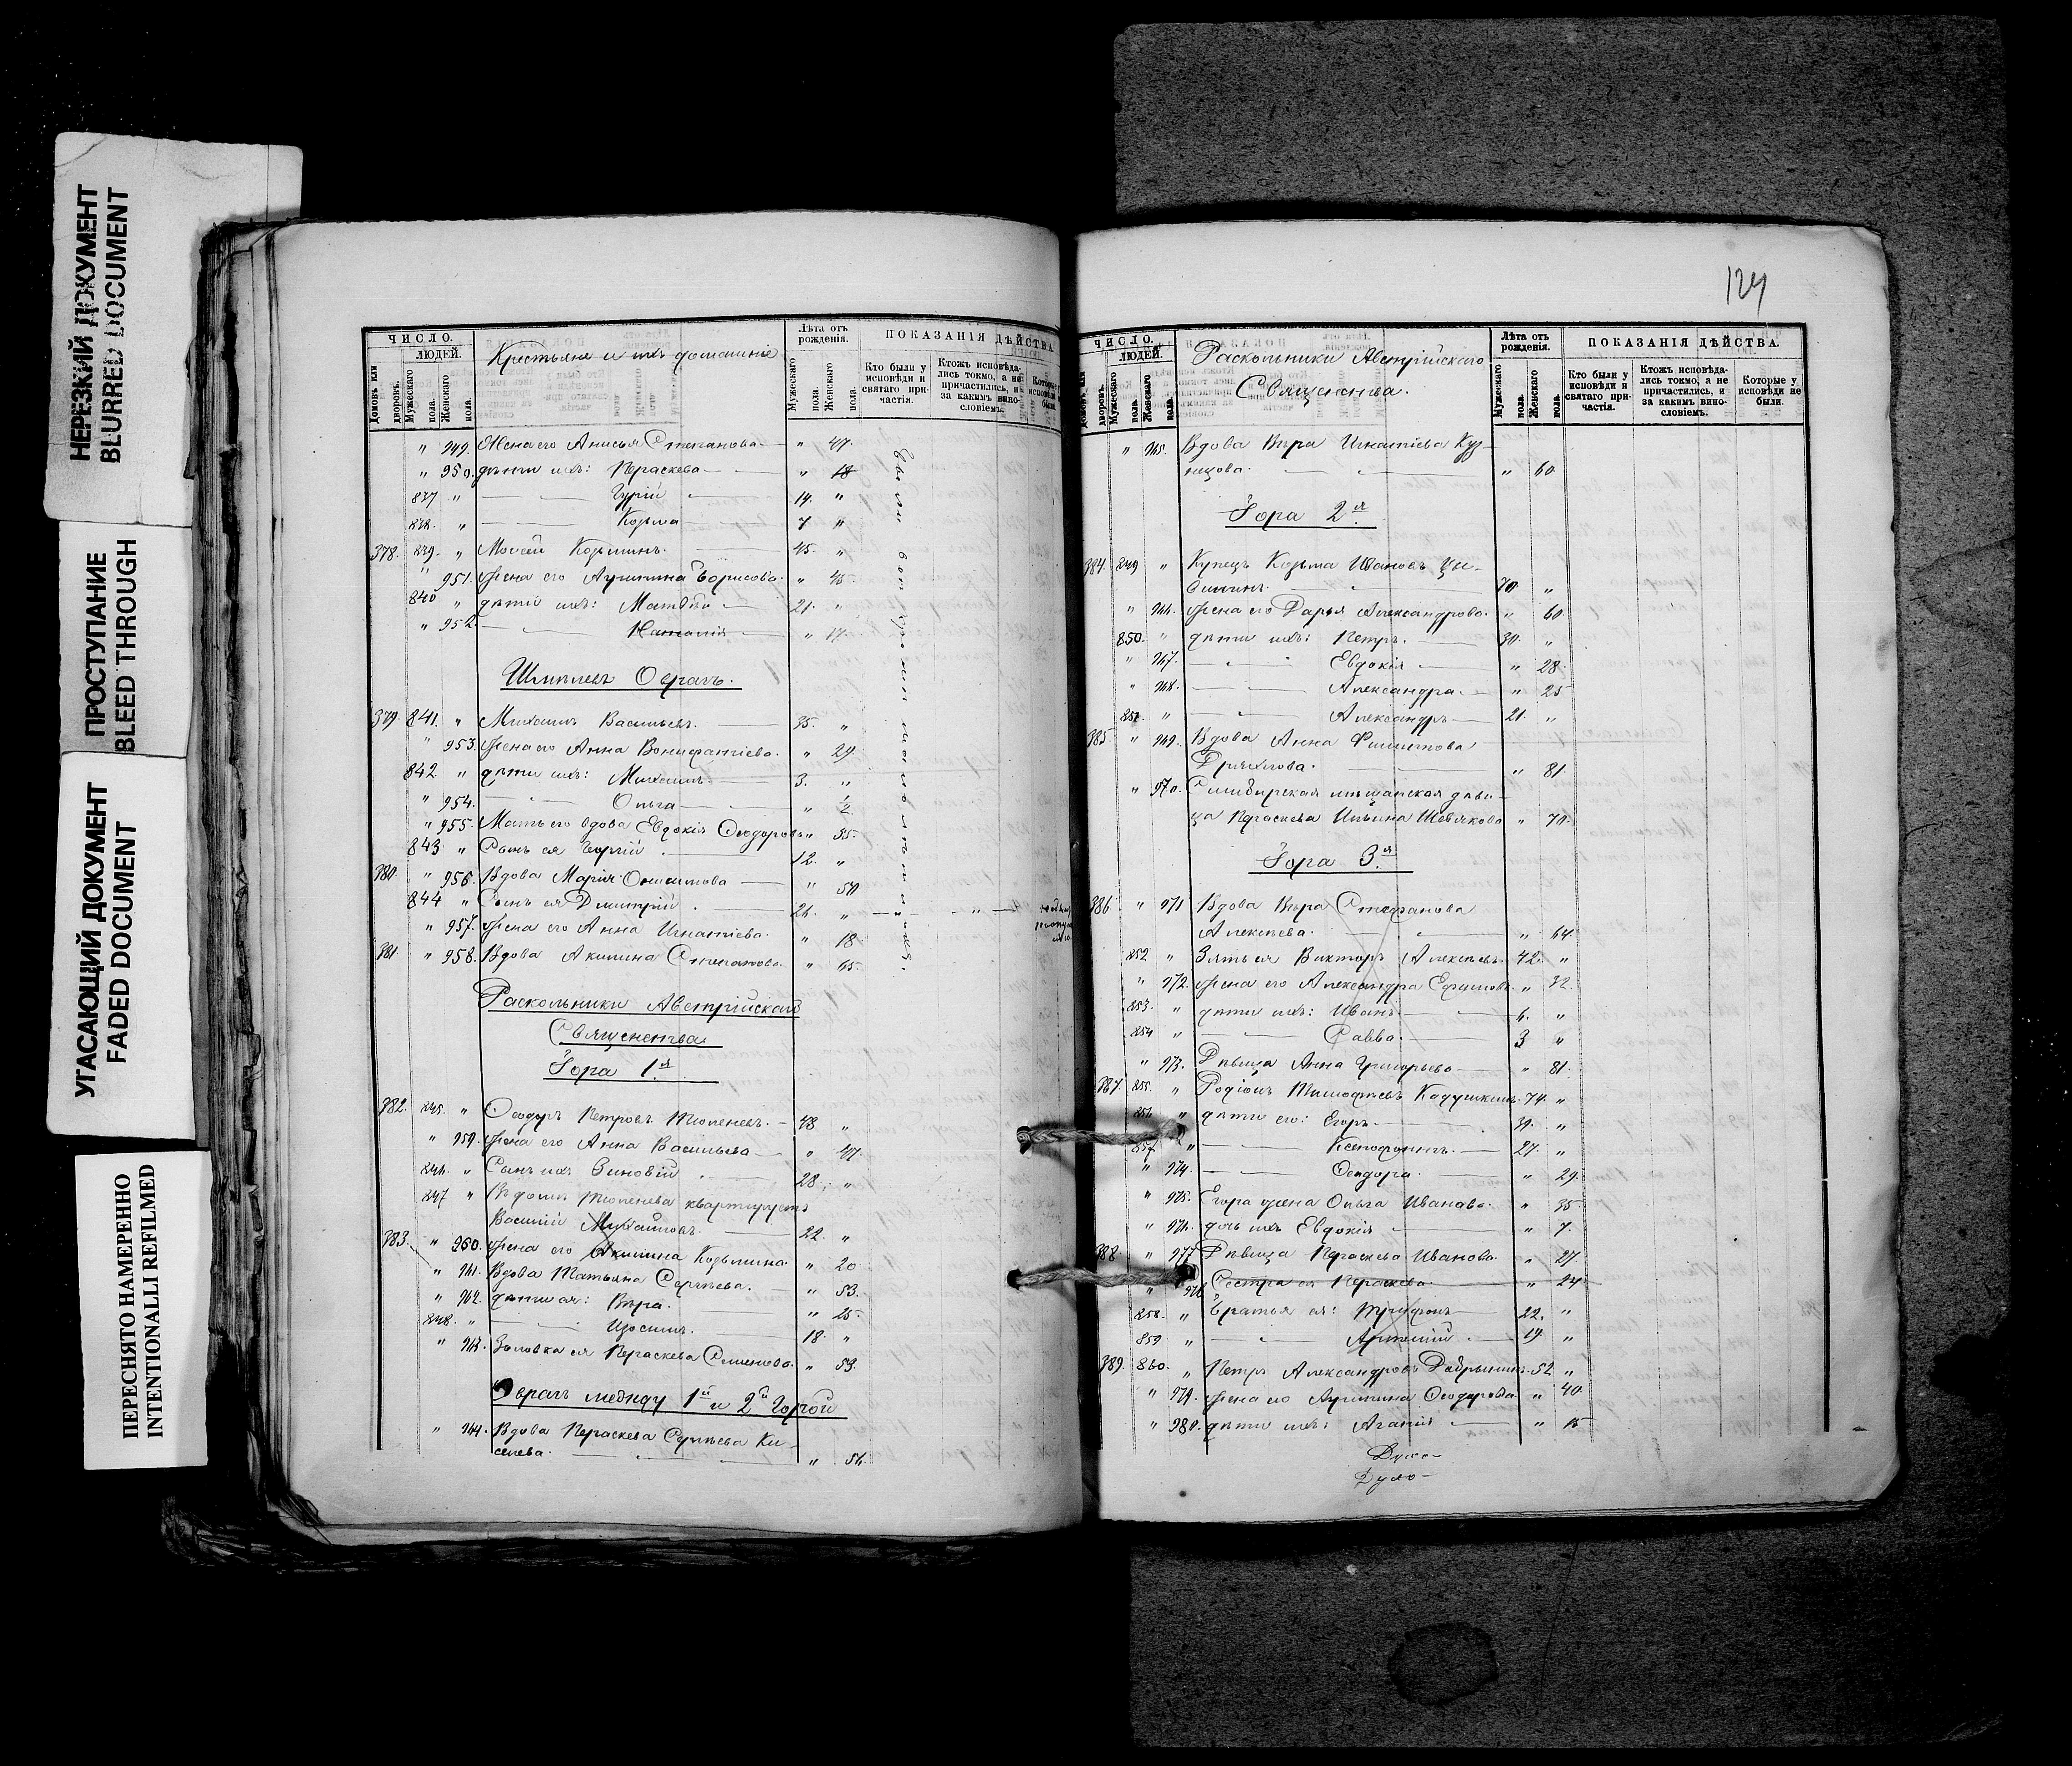 НЕРЕЗКИЙ ДОКУМЕНТ
BLURRED DOCUMENT
ПРОСТУПАНИЕ
BLEED THROUGH
УГАСАЮЩИЙ ДОКУМЕНТ
FADED DOCUMENT
ПЕРЕСНЯТО НАМЕРЕННО
INTENTIONALLI REFILMED
ЧИСЛО.
ЛЮДЕЙ.
Домовъ или дворовъ.
Мужескаго пола.
Женскаго пола.
Крестьяне и ихъ домашніе
Лѣта отъ рожденія.
Мужескаго пола.
Женскаго пола.
ПОКАЗАНІЯ ДѢЙСТВА
Кто были у исповѣди и святаго причастія.
Ктожъ исповѣдались токмо, а не причастились, и за какимъ винословіемъ.
" 949. Жена его Анисья Степанова " 47.
" 950. дѣти ихъ: Параскева " 18
837 " Гурій 14. "
838. " Козьма 7 "
378. 839. " Моисей Козьминъ. 45. "
" 951. Жена его Агрипина Борисова. " 45.
840 " дѣти ихъ: Матвѣй 21. "
" 952. Наталія " 17.
Шмелевъ Оврагъ.
379. 841. " Михаилъ Васильевъ. 35. "
" 953. Жена его Анна Вонифатіева. " 29
842 " дѣти ихъ: Михаилъ 3. "
" 954. Ольга " ½
" 955. Мать его вдова Евдокія Ѳеодорова " 55.
843 " Сынъ ея Георгій 12. "
380. " 956. Вдова Марія " 50
844 " Сынъ ея Дмитрій 26. "
" 957. Жена его Анна Игнатіева. " 18
381. " 958. Вдова Акилина Степанова. " 65.
Раскольники Австрійскаго
Священства
Гора 1я
382. 845. " Ѳеодоръ Петровъ Тюпеневъ. 48 "
" 959. Жена его Анна Васильева " 47.
846. " Сынъ ихъ Зиновій 28. "
847 " Въ домѣ Тюпенева квартируетъ
Василій Михайловъ. 22. "
383. " 960. Жена его Акилина Козьмина " 20
" 961. Вдова Татьяна Сергѣева. " 53.
" 962. дѣти ея: Вѣра. " 25.
848. " Изосимъ. 18. "
" 963. Золовка ея Параскева Семенова. " 53.
Оврагъ между 1й и 2й Горой
" 964. Вдова Параскева Сергѣева Ки-
селева. " 56.
124
ЧИСЛО.
ЛЮДЕЙ.
Домовъ или дворовъ.
Мужескаго пола.
Женскаго пола.
Раскольники Австрійскаго
Священства.
Лѣта отъ рожденія.
Мужескаго пола.
Женскаго пола.
ПОКАЗАНІЯ ДѢЙСТВА.
Кто были у исповѣди и святаго причастія.
Ктожъ исповѣдались токмо, а не причастились, и за какимъ винословіемъ.
Которые у исповѣди не были.
" 965. Вдова Вѣра Игнатіева Куз-
нецова. " 60.
Гора 2я
384. 849 " Купецъ Козьма Ивановъ
70. "
" 966. Жена его Дарья Александрова. " 60.
850. " дѣти ихъ: Петръ. 30. "
" 967. Евдокія " 28.
" 968. Александра. " 25
851. " Александръ 21. "
385 " 969. Вдова Анна Филиппова
" 81.
" 970. Симбирская мѣщанская дѣви-
ца Параскева Ильина Шевлякова " 70.
Гора 3я
386 " 971 Вдова Вѣра Стефанова
Алексѣева. " 64.
852 " Зять ея Викторъ Алексѣевъ. 42. "
" 972. Жена его Александра Ефимова. " 32.
853. " дѣти ихъ: Иванъ. 6. "
854 " Савва. 3 "
" 973. Дѣвица Анна Григорьева " 81.
387. 855. " Родіонъ Тимофеевъ Кадушкинъ. 74. "
856. " дѣти его: Егоръ. "
857. " Ксенофонтъ. 27. "
" 974. Ѳеодора. " 29.
" 975. Егора жена Ольга Иванова. " 35
" 976. дочь ихъ Евдокія " 7.
388 " 977 Дѣвица Параскева Иванова. " 27.
" 978 Сестра ея Параскева. " 24
858. " Братья ея: Трифонъ 22. "
859. " Артемій 19. "
389. 860. " Петръ Александровъ Добрынинъ. 52 "
" 979. Жена его Агрипина Ѳеодорова " 40.
" 980. дѣти ихъ: Агапія " 15